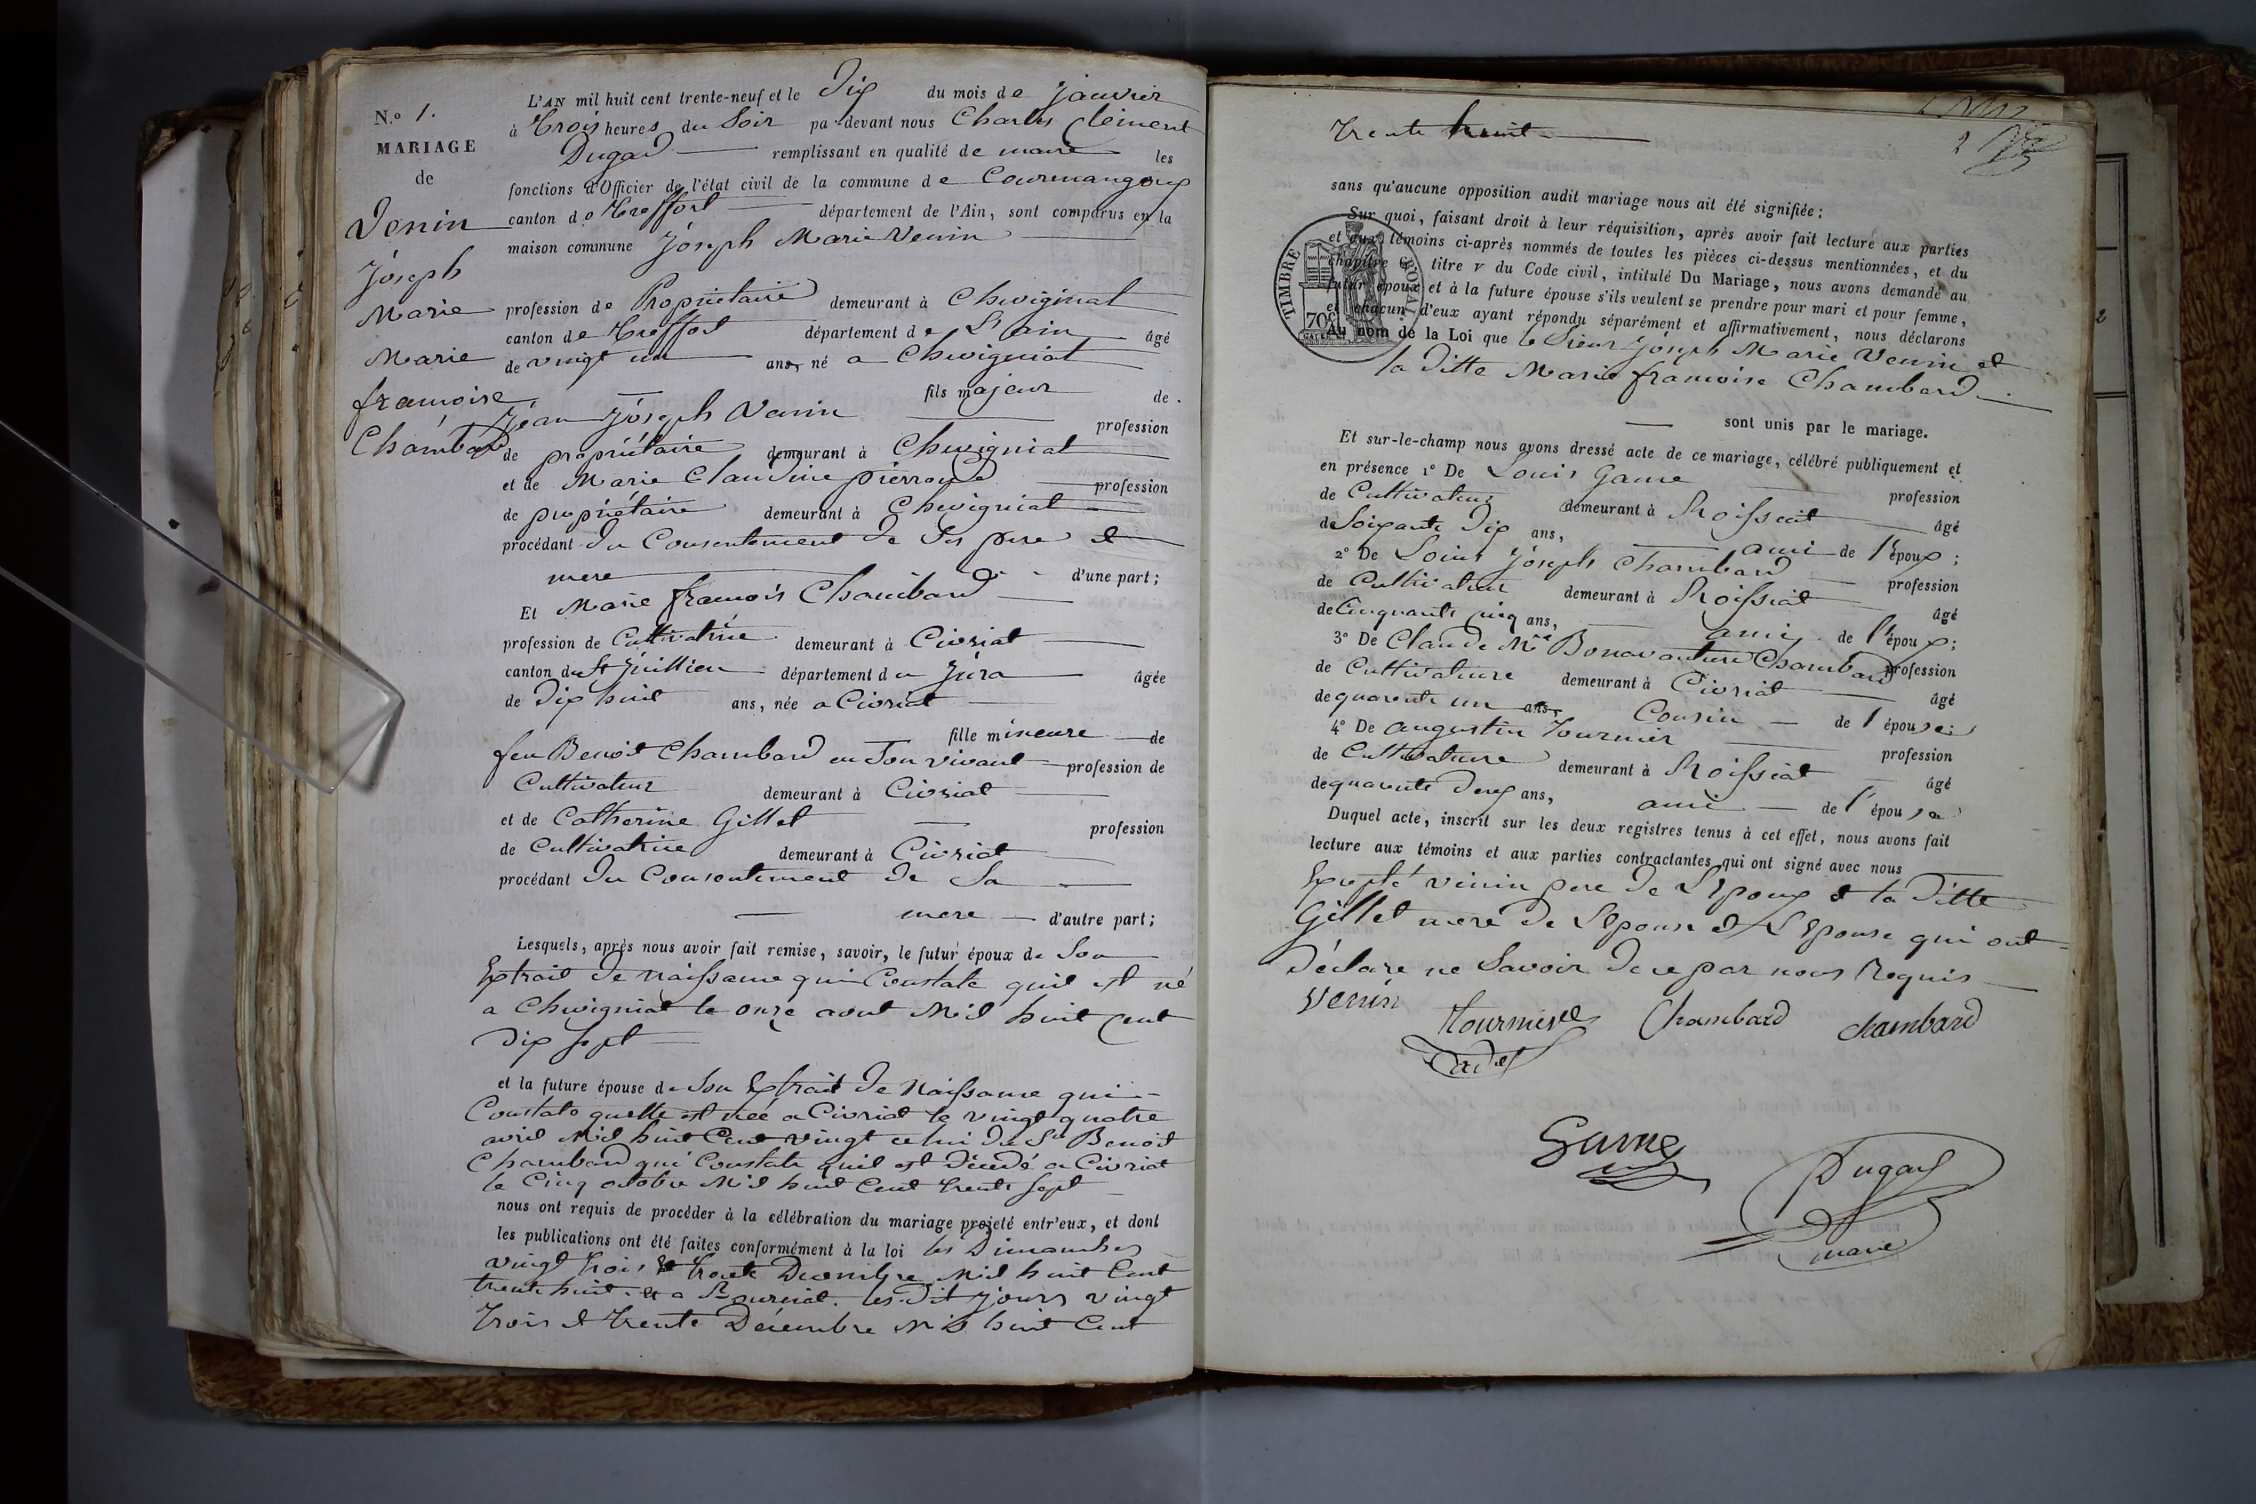 N.o 1.
MARIAGE
de
Venin
Joseph
Marie
Marie
francoise
Chambard
L'AN mil huit cent trente-neuf et le Dix du mois de Janvier
à trois heures du Soir par-devant nous Charles Clément
Dugad remplissant en qualité de maire les
fonctions d'Officier de l'état civil de la commune de Courmangoux
canton de Treffort département de l'Ain, sont comparus en la
maison commune Joseph Marie Venin
profession de Propriétaire demeurant à Chevigniat
canton de Treffort département de L'ain âgé
de vingt un ans, né a Chevigniat
fils majeur de
Jean Joseph Venin profession
de propriétaire demeurant à Chevigniat
et de Marie Claudine pierroud profession
de propriétaire demeurant à Chevigniat
procédant du Consentement de Ses pere et
mere d'une part;
Et Marie francois Chambard
profession de Cultivatrice demeurant à Civriat
canton de St Juillien département du Jura âgée
de Dix huit ans, née a Civriat
fille mineure de
feu Benoit Chambard en Son vivant profession de
Cultivateur demeurant à Civriat
et de Catherine Gillet profession
de Cultivatrice demeurant à Civriat
procédant du Consentement de Sa
mere d'autre part;
Lesquels, après nous avoir fait remise, savoir, le futur époux de Son
Extrait de naissance qui Constate quil est né
a Chevigniat le onze aout Mil huit Cent
Dix sept
et la future épouse de Son Extrait de Naissance qui
Constate quelle est née a Civriat le vingt quatre
avril Mil huit Cent vingt celui du Sr Benoit
Chambard qui Constate quil est décédé a Civriat
le Cinq octobre Mil huit Cent trente sept
nous ont requis de procéder à la célébration du mariage projeté entr'eux, et dont
les publications ont été faites conformément à la loi les Dimanches
vingt trois et trente Décembre Mil huit Cent
trente huit et a les dit jours vingt
trois et trente Décembre Mil huit Cent
trente huit
2
sans qu'aucune opposition audit mariage nous ait été signifiée;
Sur quoi, faisant droit à leur réquisition, après avoir fait lecture aux parties
et aux témoins ci-après nommés de toutes les pièces ci-dessus mentionnées, et du
chapitre 6, titre v du Code civil, intitulé Du Mariage, nous avons demandé au
futur époux et à la future épouse s'ils veulent se prendre pour mari et pour femme,
et chacun d'eux ayant répondu séparément et affirmativement, nous déclarons
Au nom de la Loi que le Sieur Joseph Marie Venin et
la ditte Marie francoise Chambard
TIMBRE ROYAL
70c
sont unis par le mariage.
Et sur-le-champ nous avons dressé acte de ce mariage, célébré publiquement et
en présence 1o De Louis Game profession
de Cultivateur demeurant à Roissiat âgé
de Soixante dix ans, ami de l'époux;
2o De Louis Joseph Chambard profession
de Cultivateur demeurant à Roissiat âgé
de Cinquante cinq ans, ami de l'époux;
3o De Claude Mie Bonavanture Chambard profession
de Cultivateure demeurant à Civriat âgé
de quarente un ans, Cousin de l'épouse;
4o De augustin Tournier profession
de Cultivateure demeurant à Roissiat âgé
de quarente deux ans, ami de l'épouse
Duquel acte, inscrit sur les deux registres tenus à cet effet, nous avons fait
lecture aux témoins et aux parties contractantes qui ont signé avec nous
Excepté venin pere de L'Epoux et la ditte
Gillet mere de L'Epouse et L'Epouse qui ont
déclare ne Savoir de ce par nous Requis
Venin
Tournier Chambard chambard
Game
Dugad
maire